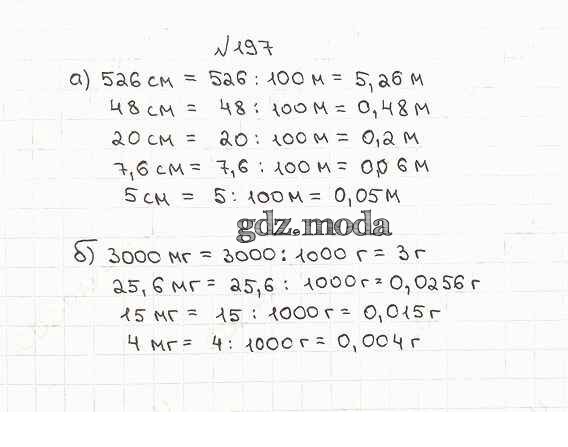 №197
а) 526 см = 526 : 100 м = 5,26 м
48 см = 48 : 100 м = 0,48 м
20 см = 20 : 100 м = 0,2 м
7,6 см = 7,6 : 100 м = 0,06 м
5 см = 5 : 100 м = 0,05 м
gdz.moda
б) 3000 мг = 3000 : 1000 г = 3 г
25,6 мг = 25,6 : 1000 г = 0,0256 г
15 мг = 15 : 1000 г = 0,015 г
4 мг = 4 : 1000 г = 0,004 г